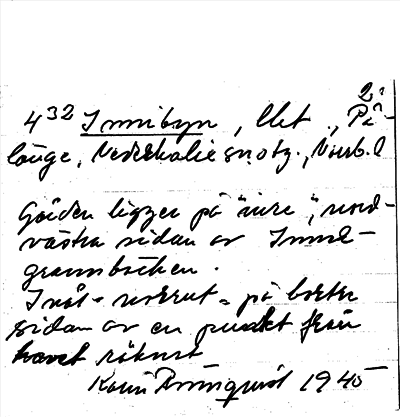 2.
432 Innibyn, Ulet, Pi-
långe, Nederkalix sn o tg., Norrb. l
Gården ligger på "inre", nord-
västra sidan av Innil-
grannbäcken.
Inåt - norrut = på bortre
sidan av en punkt från
havet räknat
1945